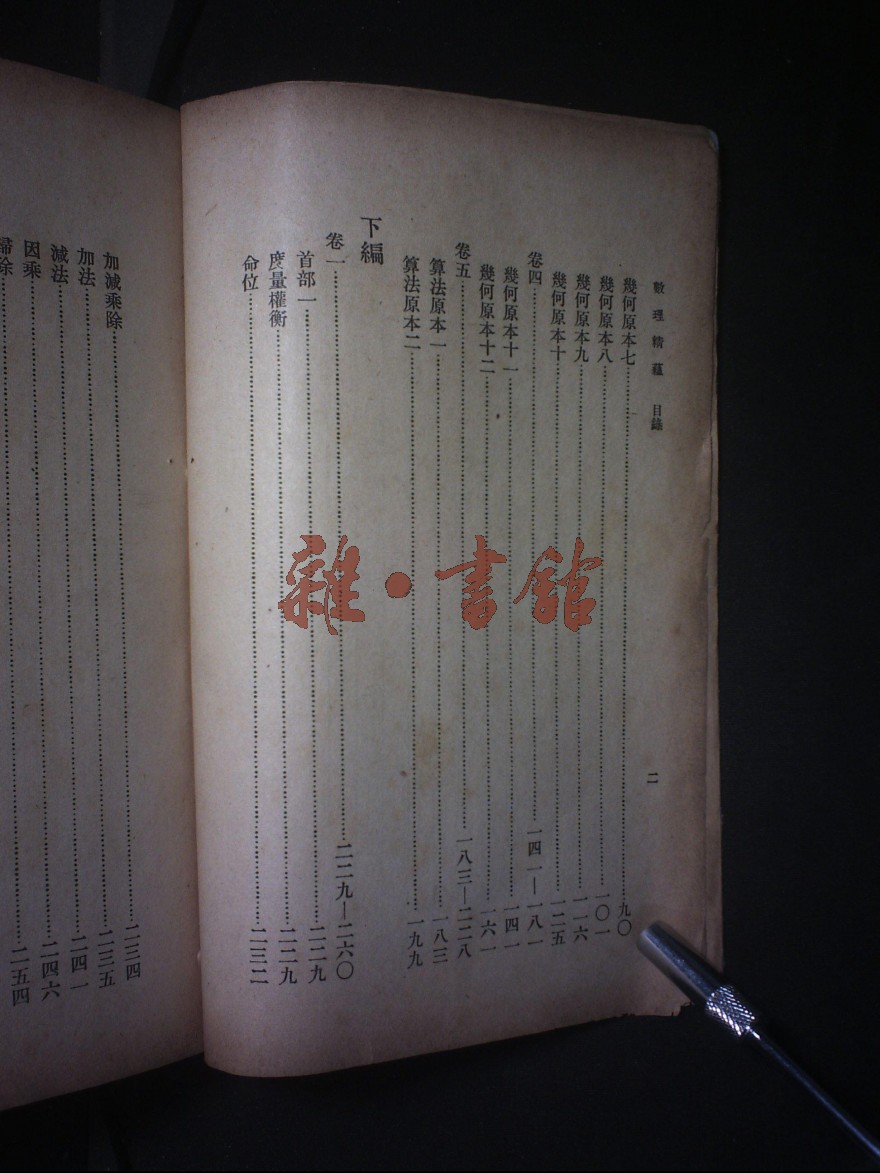 數理精蘊 目錄
二
幾何原本七……九〇
幾何原本八……一〇一
幾何原本九……一一六
幾何原本十……一二五
卷四……一四一—一八一
幾何原本十一……一四一
幾何原本十二……一六一
卷五……一八三—二二八
算法原本一……一八三
算法原本二……一九九
下編
卷一……二二九—二六〇
首部一……二二九
度量權衡……二二九
命位……二三二
加減乘除……二三四
加法……二三五
減法……二四一
因乘……二四六
歸除……二五四
雜·書館